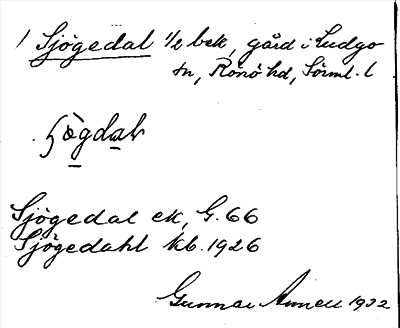 1 Sjögedal ½ bek, gård i Ludgo
sn, Rönö hd, Sörml. l
Sjögedal ek, G. 66
Sjögedahl kb. 1926
Gunnar 1932